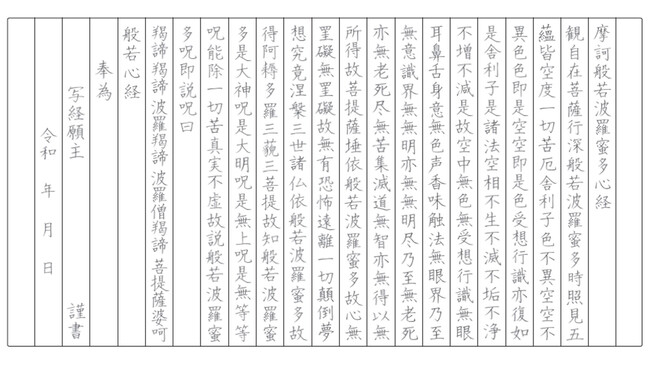 摩訶般若波羅蜜多心経
観自在菩薩行深般若波羅蜜多時照見五
蘊皆空度一切苦厄舎利子色不異空空不
異色色即是空空即是色受想行識亦復如
是舎利子是諸法空相不生不滅不垢不浄
不増不減是故空中無色無受想行識無眼
耳鼻舌身意無色声香味触法無眼界乃至
無意識界無無明亦無無明尽乃至無老死
亦無老死尽無苦集滅道無智亦無得以無
所得故菩提薩埵依般若波羅蜜多故心無
罣礙無罣礙故無有恐怖遠離一切顛倒夢
想究竟涅槃三世諸仏依般若波羅蜜多故
得阿耨多羅三藐三菩提故知般若波羅蜜
多是大神呪是大明呪是無上呪是無等等
呪能除一切苦真実不虚故説般若波羅蜜
多呪即説呪曰
羯諦羯諦 波羅羯諦 波羅僧羯諦 菩提薩婆呵
般若心経
奉為
写経願主 謹書
令和 年 月 日